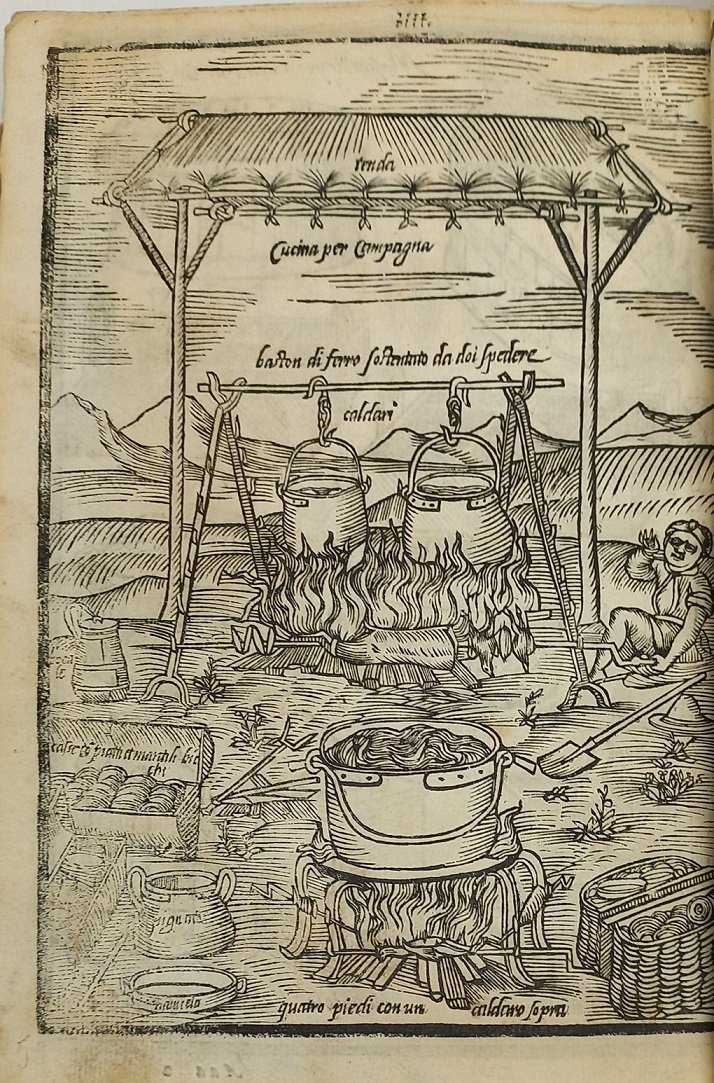 IIII.
tenda
Cucina per Campagna
baston di ferro sostentato da doi spedere
caldari
piatti et mantili bic
chi
pignata
quatro piedi con un caldaro sopra